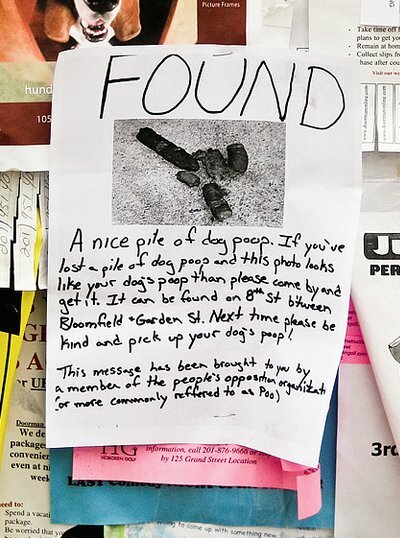 Picture Frames
hund
105
FOUND
A nice pile of dog poop. If you've
lost a pile of dog poop and this photo looks
like your dog's poop than please come by and
get it. It can be found on 8th St btween
Bloomfield + Garden St. Next time please be
kind and pick up your dog's poop!
This message has been brought to you by
a member of the people's opposition organizati
(or more commonly reffered to as Poo)
Take time off
plans to get you
Remain at home
Collect slips fro
chase after cou
Visit our we
PER
3rd
Doorman
We de
packages
convenien
even at ni
week
need to:
Spend a vacati
package.
Be worried that
information, call 201-876-9666 or
by 125 Grand Street Location
HOBOKEN GOLF
LAST
coming to come up with something new.